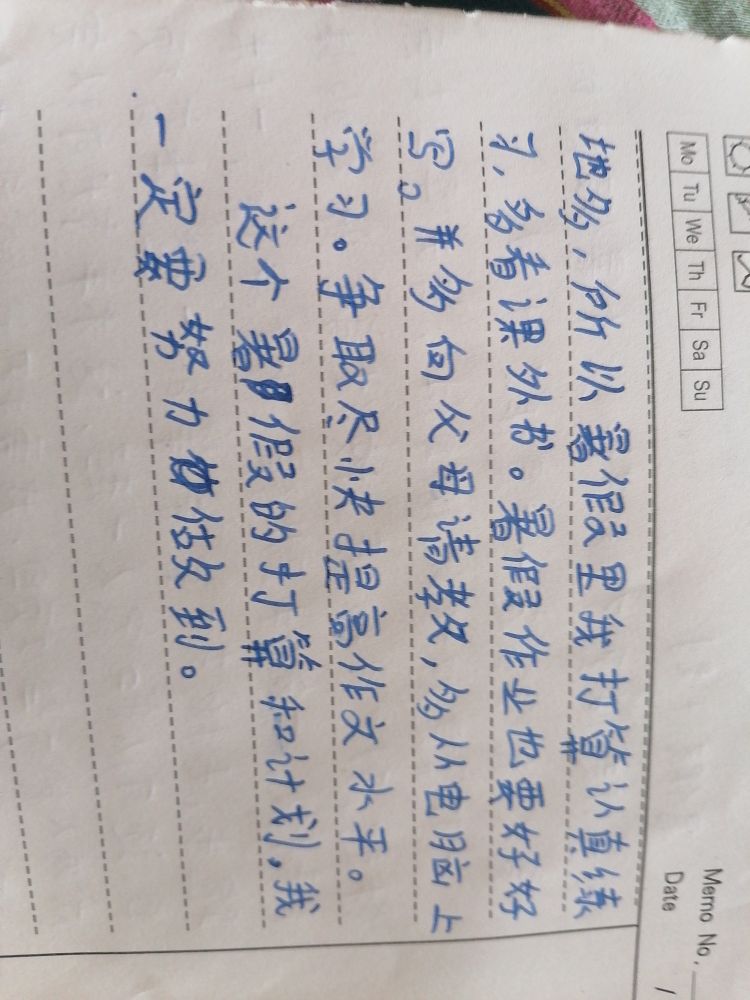 Memo No.
Mo Tu We Th Fr Sa Su
Date /
地多，所以暑假里我打算认真练
习，多看课外书。暑假作业也要好好
写。并多向父母请教，多从电脑上
学习。争取尽快提高作文水平。
这个暑假的打算和计划，我
一定要努力做到。